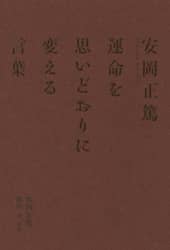 安岡正篤
運命を
思いどおりに
変える
言葉